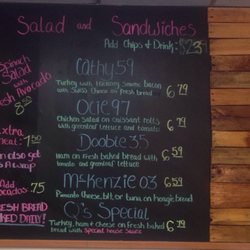 Salad and Sandwiches
Add Chips & Drink:
Spinach
Salad
with
Fresh Avocado
8.50
Extra
Meat: 1.50
Can also get
as a wrap
Add
Avocado .75
FRESH BREAD
BAKED DAILY!
Cathy 59
Turkey with Hickory smoke bacon
with Swiss Cheese on fresh bread 6.79
Ocie 97
Chicken Salad on croissant rolls
with greenleaf lettuce and tomato 6.79
Doobie 35
Ham on Fresh baked bread with
tomato and greenleaf lettuce 6.59
McKenzie 03 6.59
Pimento cheese, blt, or tuna on hoagie bread
Q's Special
Turkey, ham & cheese on Fresh baked
bread with Special house Sauce 6.79